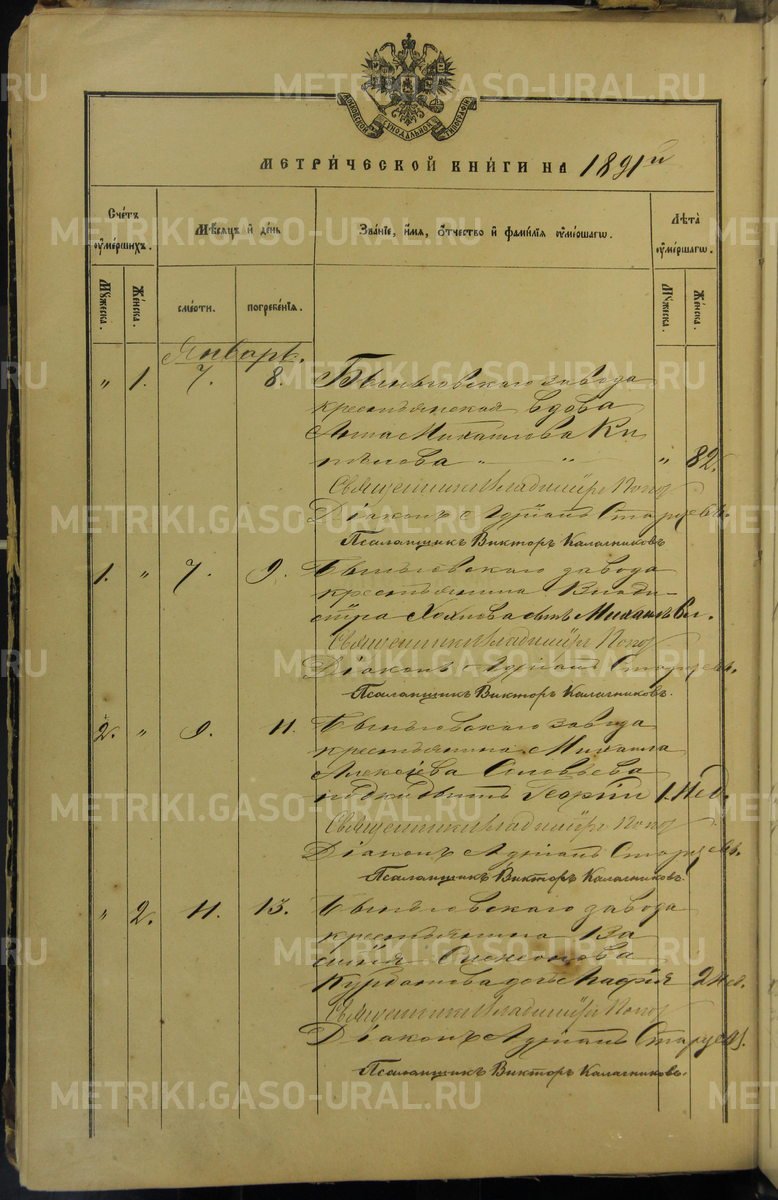 МОСКОВСКОЙ СѴНОДАЛЬНОЙ ТИПОГРАФІИ
МЕТРИ́ЧЕСКОЙ КНИ́ГИ НА 1891й
Сче́тъ оуме́ршихъ.
Мѣ́сяцъ и де́нь
Зва́ніе, и́мя, о́тчество и фами́лія оуме́ршагѡ.
Лѣ́та оуме́ршагѡ.
Мꙋ́жеска.
Же́нска.
сме́рти.
погребе́нія.
Мꙋ́жеска.
Же́нска.
Январь.
„ 1. 7. 8. Быньговскаго завода
крестьянская вдова
Анна Михайлова Ки
„ „ „ 82.
Священникъ Владиміръ Попов
Діаконъ Адріанъ Старцевъ.
Псаломщикъ Викторъ Калачниковъ
1. „ 7. 9. Быньговскаго завода
крестьянина
сынъ Михаилъ
Священникъ Владиміръ Попов
Діаконъ Адріанъ Старцевъ.
Псаломщикъ Викторъ Калачниковъ.
2. „ 9. 11. Быньговскаго завода
крестьянина Михаила
Алексѣева Соловьева
Георгій 1. Нед.
Священникъ Владиміръ Попов
Діаконъ Адріанъ Старцевъ.
Псаломщикъ Викторъ Калачниковъ.
„ 2. 11. 13. Быньговскаго завода
крестьянина Ва
силія
дочь Марія 2 Нед.
Священникъ Владиміръ Попов
Діаконъ Адріанъ Старцевъ.
Псаломщикъ Викторъ Калачниковъ.
METRIKI.GASO-URAL.RU